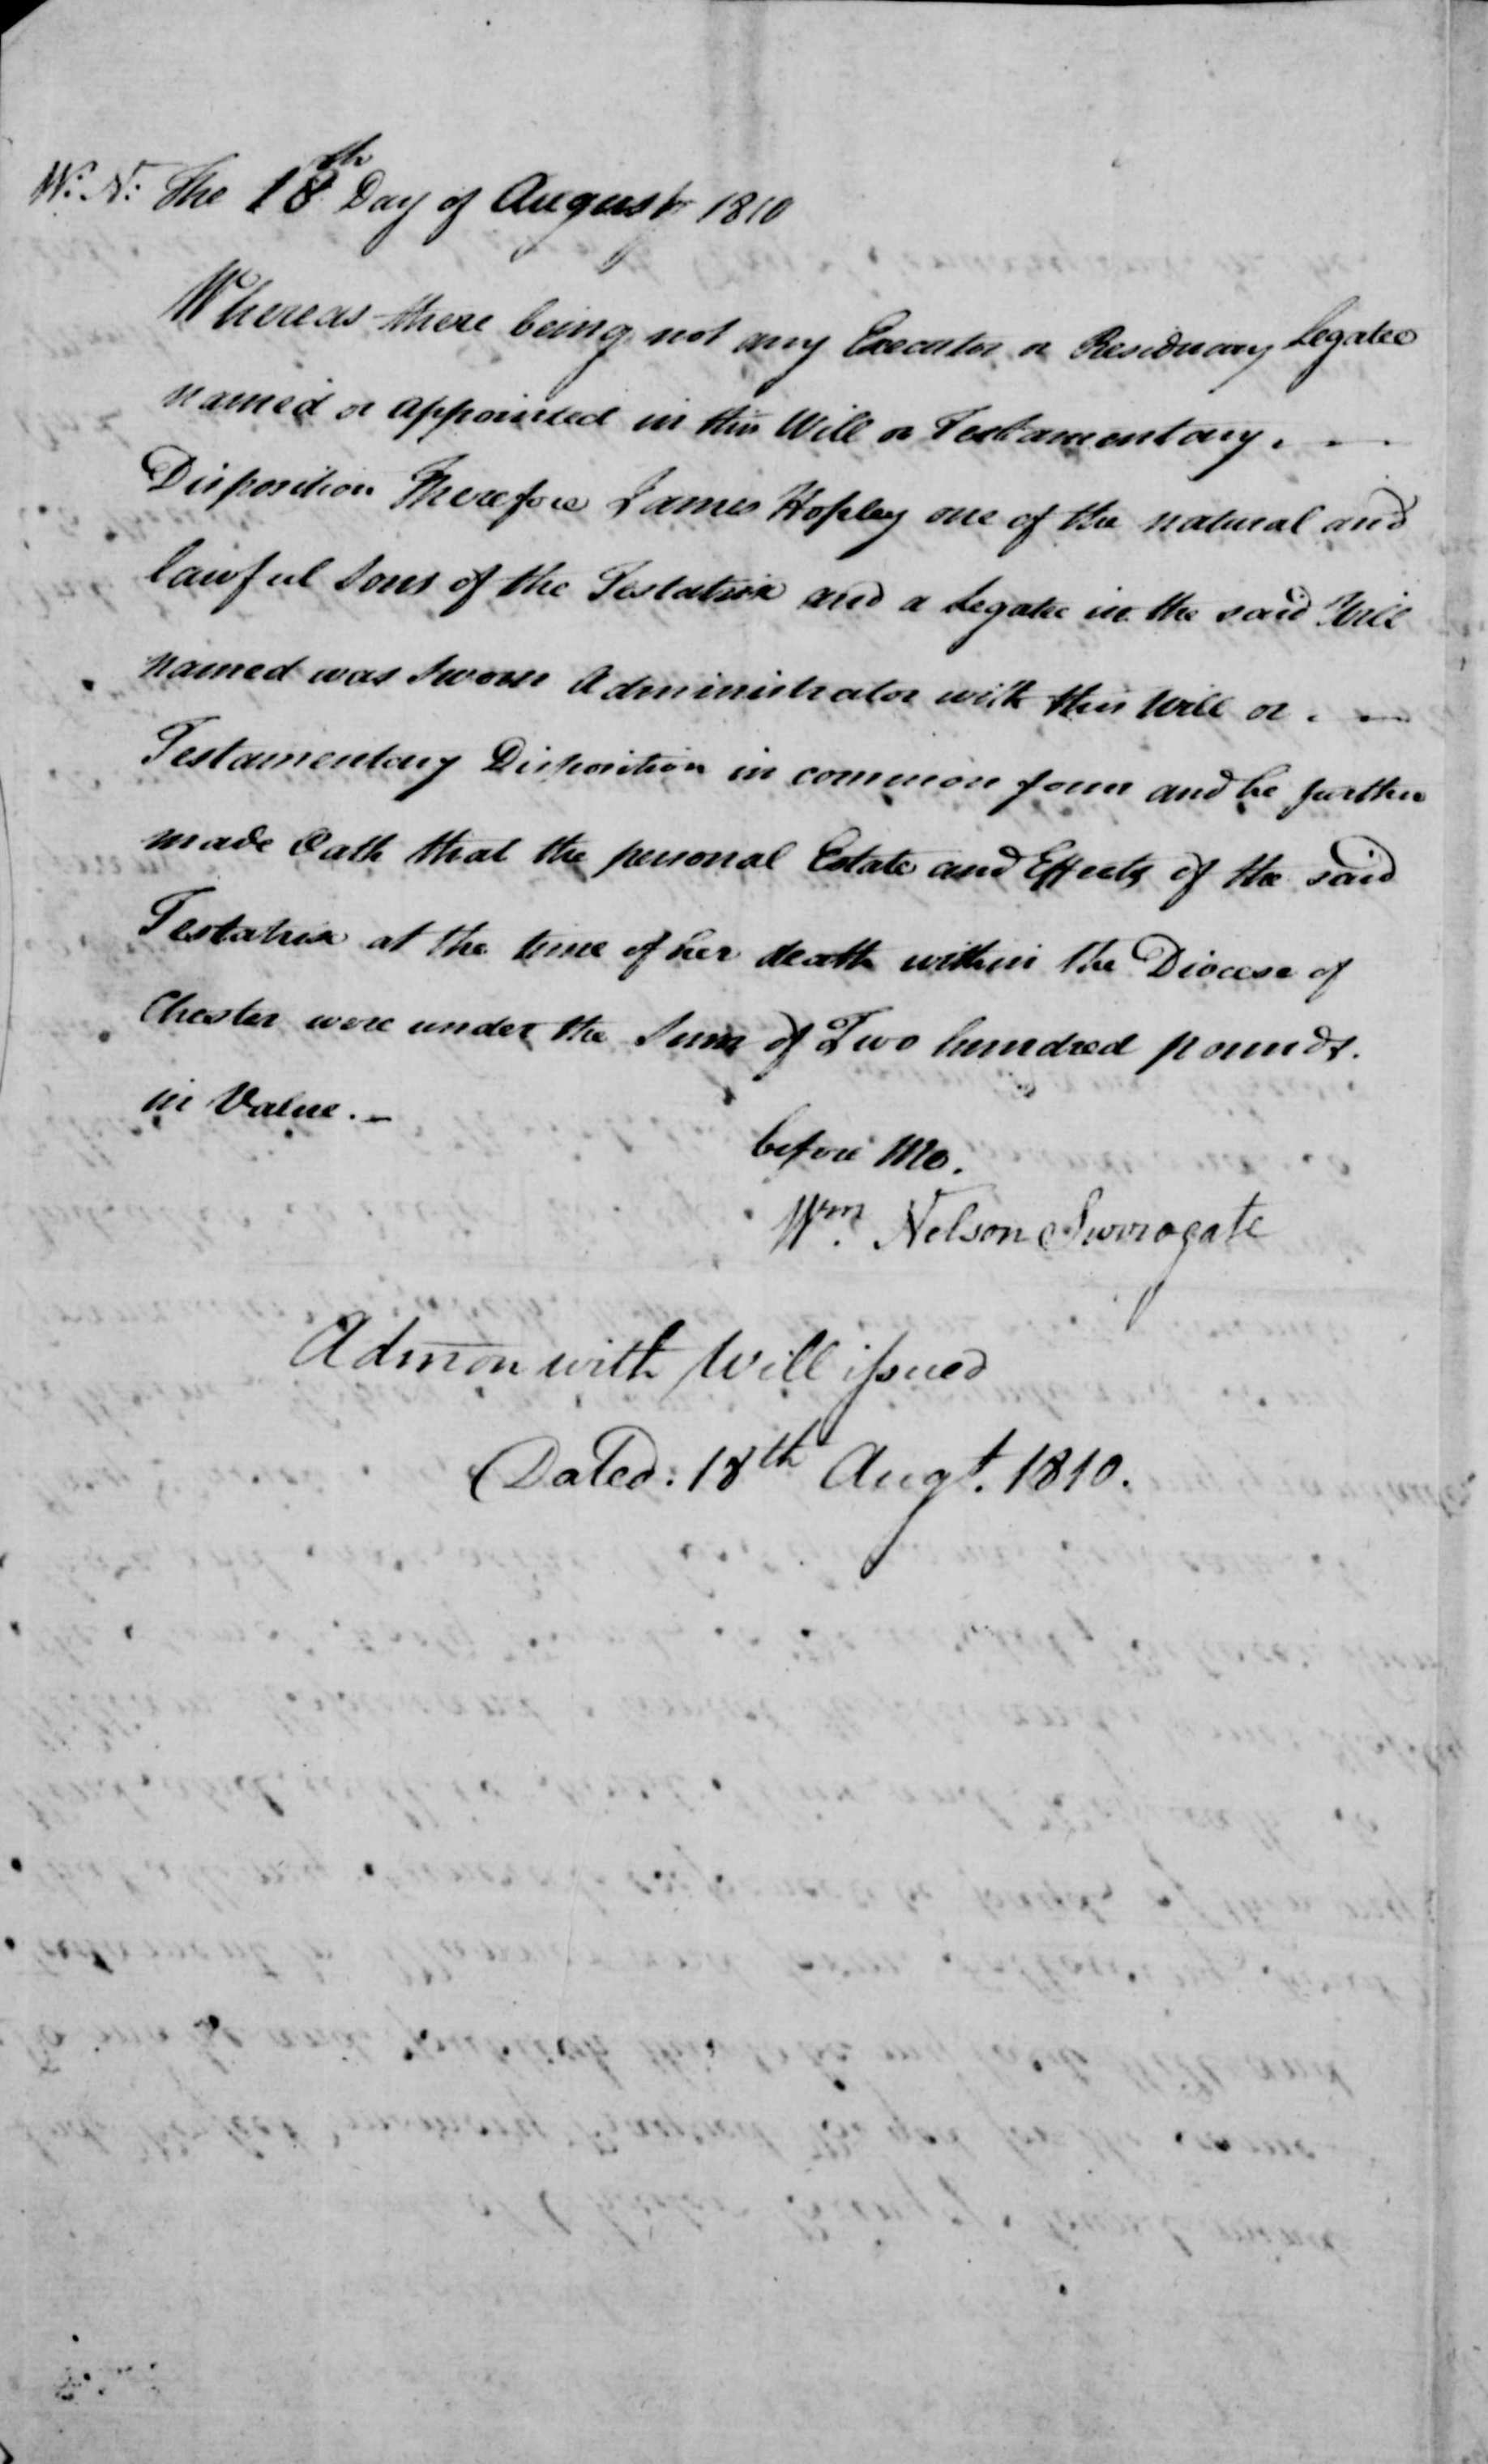 W: N: The 18th Day of August 1810
Whereas there being not any Executor or Residuary Legatee
named or appointed in this Will or Testamentary. —
Disposition Therefore James Hopley one of the natural and
lawful Sons of the Testatrix and a Legatee in the said Will
named was Sworn Administrator with this Will or . —
Testamentary Disposition in common form and he further
made Oath that the personal Estate and Effects of the said
Testatrix at the time of her death within the Diocese of
Chester were under the Sum of Two hundred pounds.
in Value. —
before Me.
Wm. Nelson Surrogate
Admon with Will issued
Dated: 18th Augt. 1810.